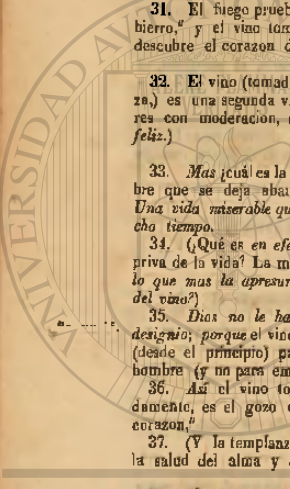 31. El fuego prueb
hierro," y el vino tom
descubre el corazon d
32. El vino (tomad
za,) es una segunda v
res con moderacion,
feliz.)
33. Mas ¿cuál es la
bre que se deja aba
Una vida miserable qu
cho tiempo.
34. (¿Qué es en efe
priva de la vida? La m
lo que mas la apresur
del vino?)
35. Dios no le ha
designio; porque el vin
(desde el principio) pa
hombre (y no para em
36. Así el vino to
damente, es el gozo
corazon,"
37. (Y la templanz
la salud del alma y